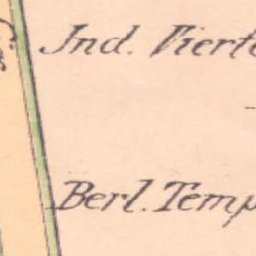 Ind. Vierte
Berl. Temp